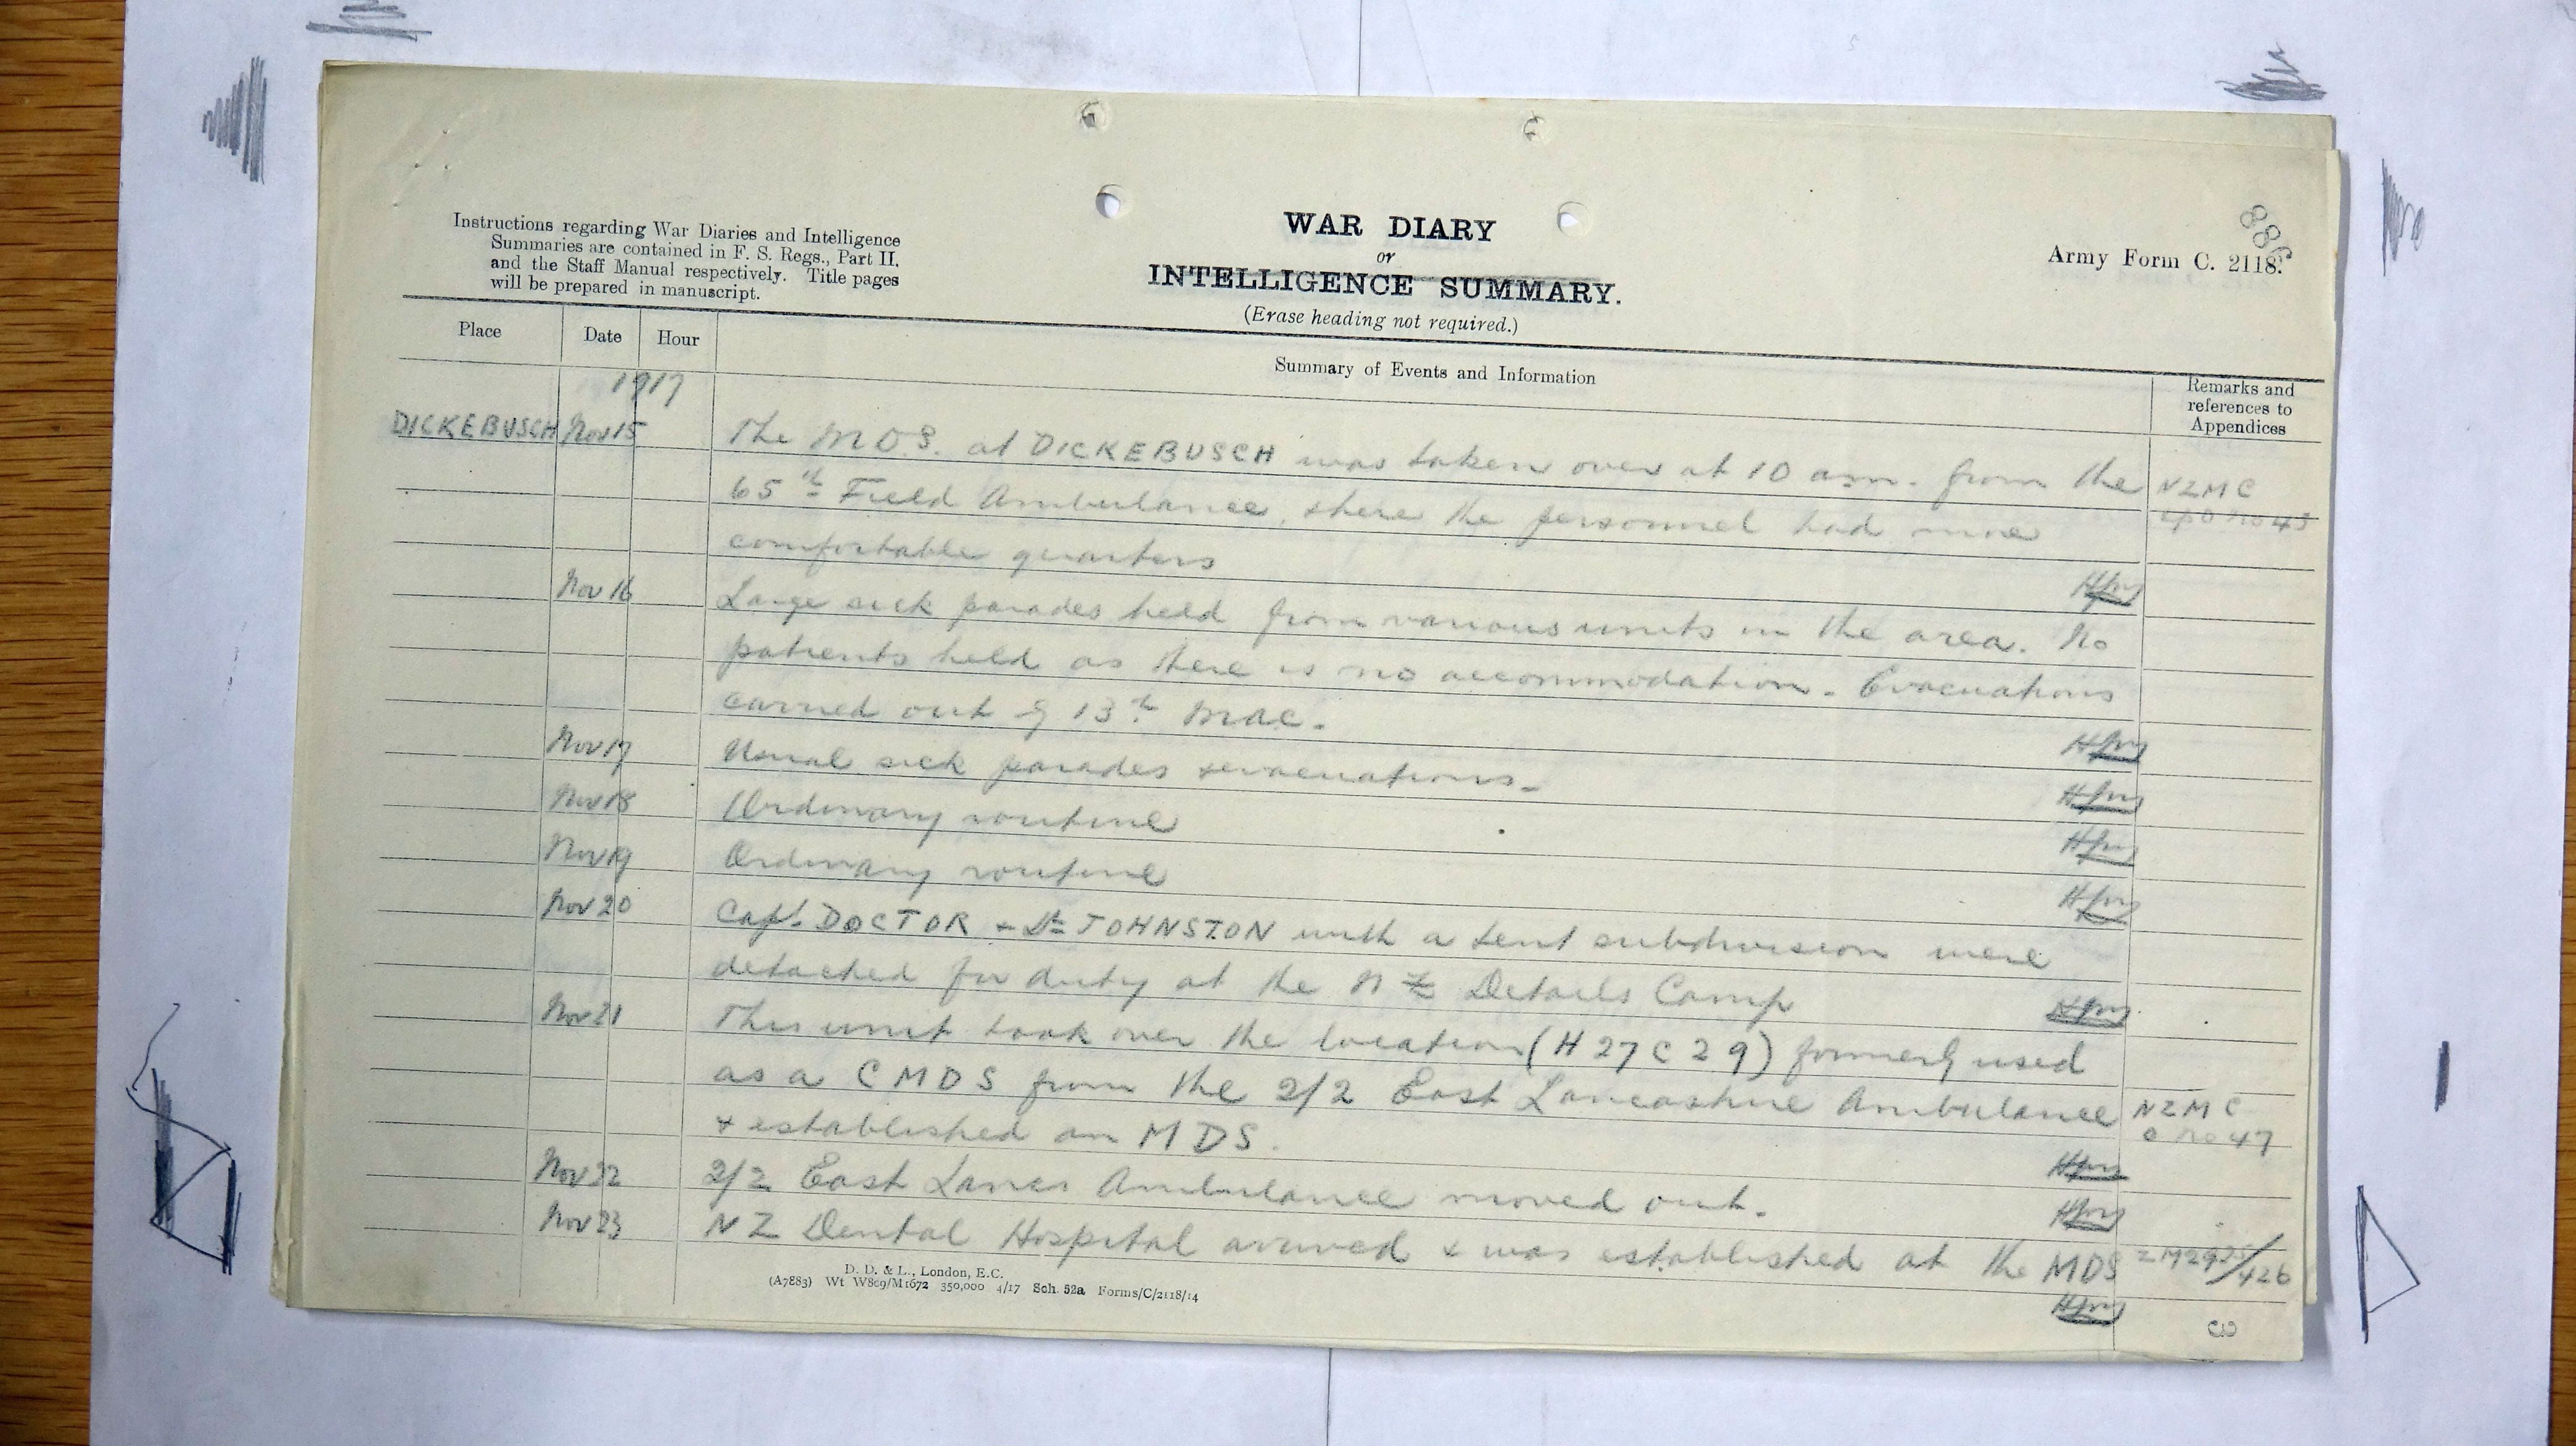 Instructions regarding War Diaries and Intelligence
Summaries are contained in F. S. Regs., Part II.
and the Staff Manual respectively. Title pages
will be prepared in manuscript.
WAR DIARY
or
INTELLIGENCE SUMMARY.
(Erase heading not required.)
Army Form C. 2118.
Place Date Hour Summary of Events and Information Remarks and
references to
Appendices
1917
DICKEBUSCH Nov 15 The M.D.S. at DICKEBUSCH was taken over at 10 am. from the NZMC
65th Field Ambulance, where the personnel had more no 43
comfortable quarters
Nov 16 Large sick parades held from various units in the area. No
patients held as there is no accommodation. Evacuations
carried out by 13th MAC.
Nov 17 Usual sick parades & evacuations.
Nov 18 Ordinary routine
Nov 19 Ordinary routine
Nov 20 Capt. DOCTOR & Lt JOHNSTON with a tent subdivision were
detached for duty at the NZ Details Camp
Nov 21 This unit took over the location (H 27 C 2 9) formerly used
as a CMDS from the 2/2 East Lancashire Ambulance NZMC
& established an MDS. o no 47
Nov 22 2/2 East Lancs Ambulance moved out.
Nov 23 NZ Dental Hospital arrived & was established at the MDS
D. D. & L., London, E.C.
(A7883) Wt W809/M1672 350,000 4/17 Sch. 52a Forms/C/2118/14
3